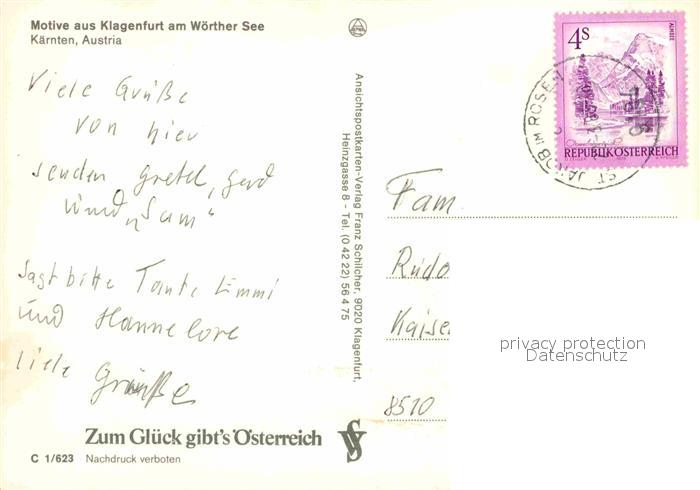 Motive aus Klagenfurt am Wörther See
Kärnten, Austria
Viele Grüße
von hier
senden Gretel, Gerd
und „Sam“
Sagt bitte Tante Emmi
und Hannelore
liebe Grüße
Zum Glück gibt's Österreich
C 1/623 Nachdruck verboten
Ansichtspostkarten-Verlag Franz Schilcher, 9020 Klagenfurt,
Heinzgasse 8 - Tel. (0 42 22) 56 4 75
4S
ALMSEE
REPUBLIK ÖSTERREICH
ST. JAKOB IM ROSEN
Fam.
Rudo
Kaise
8510
privacy protection
Datenschutz